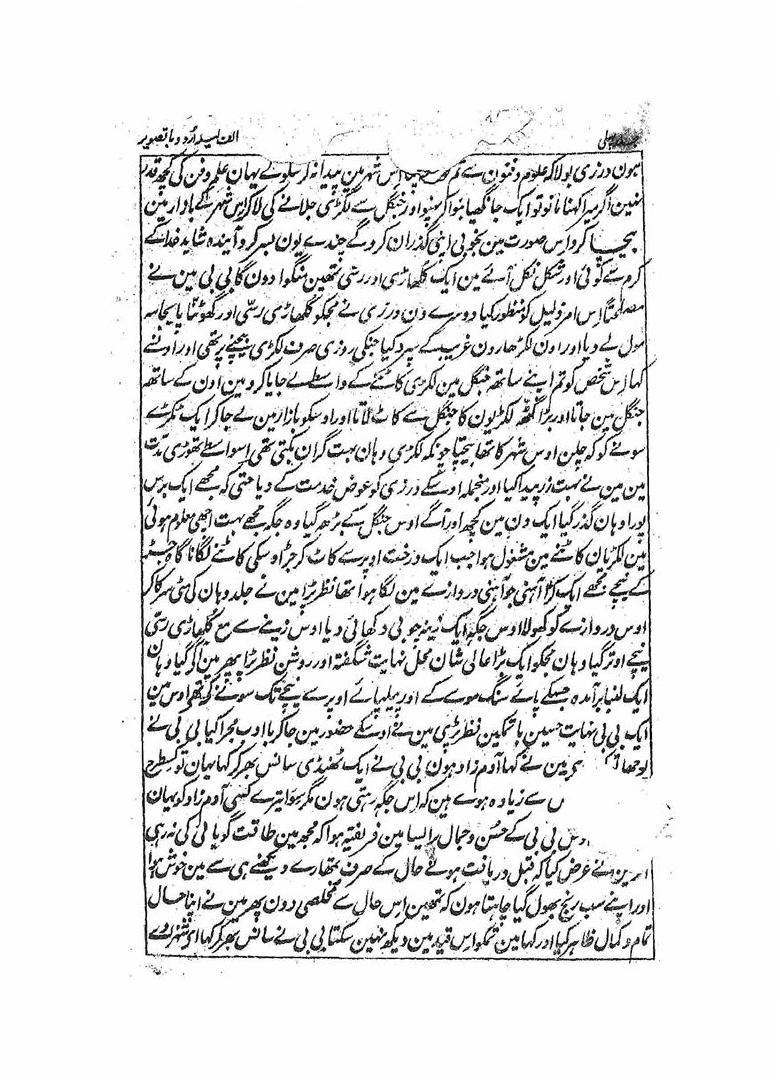 جلد پہلی
الف لیلہ اُردو با تصویر
ہون درزی بولا کہ علوم و فنون سے تم اس شہر مین پیدا نہ کر سکوگے یہان علم و فن کی کچھ قدر
نہین اگر میرا کہنا مانو تو ایک جانگھیا بنوا کر پہنو اور جنگل سے لکڑی جلانے کی لا کر اس شہر کے بازار مین
بیچا کرو اس صورت مین بخوبی اپنی گذران کروگے چندے یون بسر کرو آیندہ شاید خدا کے
کرم سے کوئی اور شکل نکل آئے مین ایک کلھاڑی اور رسی تمھین منگوا دون گا بی بی مین نے
مصلحتاً اِس امر ذلیل کو منظور کیا دوسرے دن درزی نے مجکو کلھاڑی رسّی اور گھوٹنا پائجامہ
مول لے دیا اور اون لکڑھارون غریب کے سپرد کیا جنکی روزی صرف لکڑی بیچنے پر تھی اور اونسے
کہا اِس شخص کو تم اپنے ساتھ جنگل مین لکڑی کاٹنے کے واسطے لے جایا کرو مین اون کے ساتھ
جنگل مین جاتا اور بڑا گٹھا لکڑیون کا جنگل سے کاٹ لاتا اور اوسکو بازار مین لے جا کر ایک ٹکڑے
سونے کو کہ چلن اوس شہر کا تھا بیچتا چونکہ لکڑی وہان بہت گران بکتی تھی اسواسطے تھوڑی مدّت
مین مین نے بہت زر پیدا کیا اور منجملہ اوسکے درزی کو عوض خدمت کے دیا حتی کہ مجھے ایک برس
پورا وہان گذر گیا ایک دن مین کچھ اور آگے اوس جنگل کے بڑھ گیا وہ جگہ مجھے بہت اچھی معلوم ہوئی
مین لکڑیان کاٹنے مین مشغول ہوا جب ایک درخت اوپر سے کاٹ کر جڑ اوسکی کاٹنے لگا ناگاہ
کے نیچے مجھے ایک کڑا آہنی جو آہنی دروازے مین لگا ہوا تھا نظر پڑا مین نے جلد وہان کی مٹی سرکا کر
اوس دروازے کو کھولا اوس جگہ ایک زینہ چوبی دکھائی دیا اوس زینے سے مع کلھاڑی رسّی
نیچے اوتر گیا وہان مجکو ایک بڑا عالی شان محل نہایت شگفتہ اور روشن نظر پڑا پھر مین آگے گیا وہان
ایک لنبا برآمدہ جسکے پائے سنگ موسے کے اور پہلپائے اوپر سے نیچے تک سونے کے تھے اوس مین
ایک بی بی نہایت حسین با تمکین نظر پڑی مین نے اوسکے حضور مین جا کر با ادب مجرا کیا بی بی نے
پوچھا مین نے کہا آدم زاد ہون بی بی نے ایک ٹھنڈی سانس بھر کر کہا یہان تو کسطرح
سے زیادہ ہوے ہین کہ اس جگہ رہتی ہون مگر سوا تیرے کسی آدم زاد کو یہان
اوس بی بی کے حسن و جمال پر ایسا مین فریفتہ ہوا کہ مجھ مین طاقت گویائی کی نہ رہی
نے عرض کیا کہ قبل دریافت ہونے حال کے صرف تمھارے دیکھنے ہی سے مین خوش ہوا
اور اپنے سب رنج بھول گیا چاہتا ہون کہ تمھین اس حال سے مخلصی دون پھر مین نے اپنا حال
تمام و کمال ظاہر کیا اور کہا مین تمکو اس قید مین دیکھ نہین سکتا بی بی نے سانس بھر کر کہا اے شہزادے